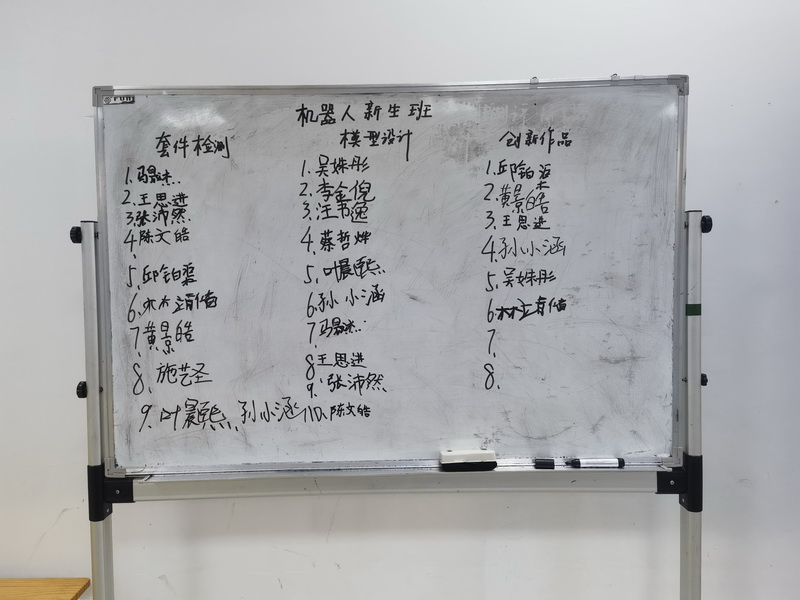 机器人新生班
套件检测
1.马晨杰
2.王思进
3.张沛然
4.陈文皓
5.邱铂
6.林立有信
7.黄景皓
8.施艺圣
9.叶晨熙 孙小涵
模型设计
1.吴姝彤
2.李金倪
3.汪书逸
4.蔡哲烨
5.叶晨熙
6.孙小涵
7.马晨杰
8.王思进
9.张沛然
10.陈文皓
创新作品
1.邱铂
2.黄景皓
3.王思进
4.孙小涵
5.吴姝彤
6.
7.
8.